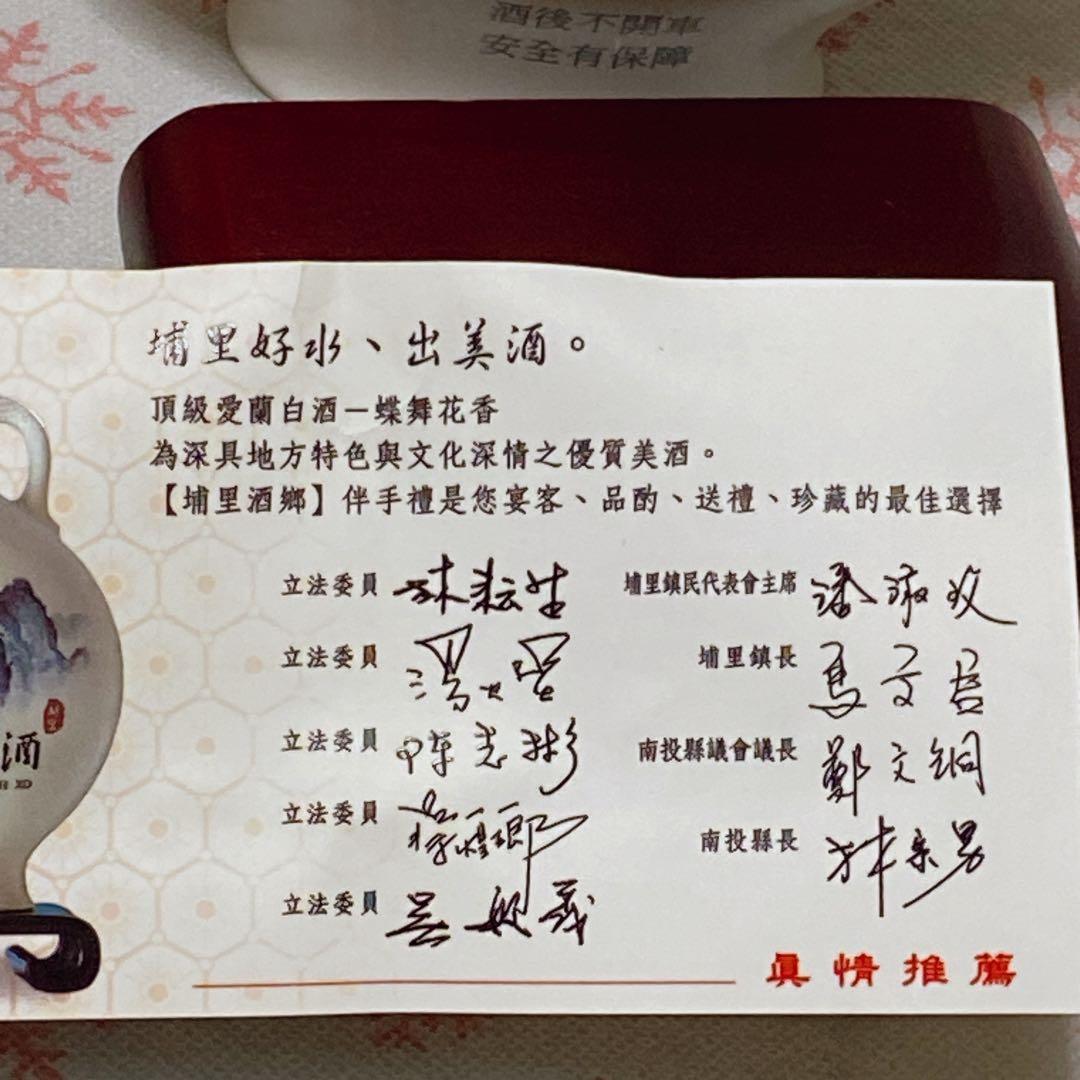 酒後不開車
安全有保障
埔里好水、出美酒。
頂級愛蘭白酒－蝶舞花香
為深具地方特色與文化深情之優質美酒。
【埔里酒鄉】伴手禮是您宴客、品酌、送禮、珍藏的最佳選擇
立法委員
埔里鎮民代表會主席
立法委員
埔里鎮長 馬文君
立法委員
南投縣議會議長 鄭文銅
立法委員
南投縣長
立法委員 吳敦義
酒
真情推薦